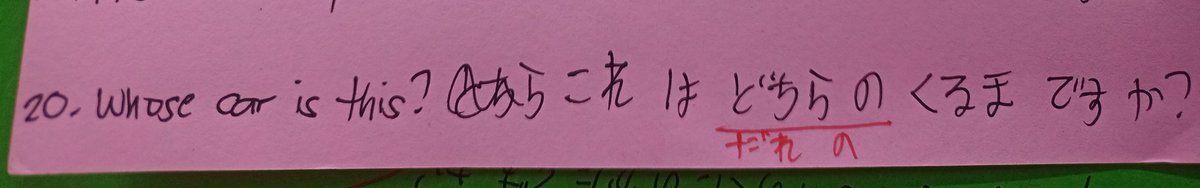 20. Whose car is this? これ は どちらの くるま ですか?
だれ の